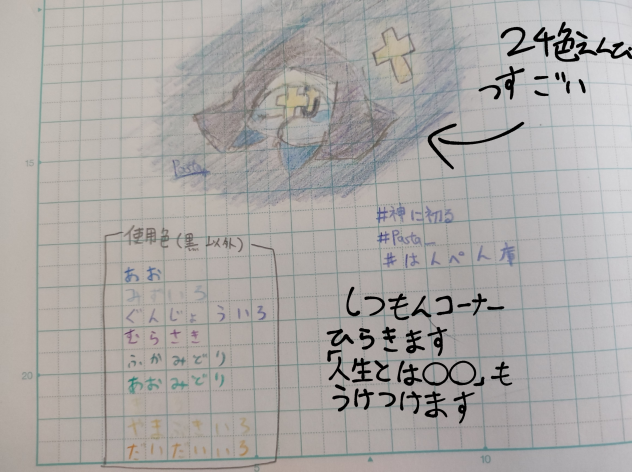 24色えんぴ
つすごい
Pasta_
#神に初る
#Pasta_
#はんぺん庫
使用色(黒以外)
あお
みずいろ
ぐんじょういろ
むらさき
ふかみどり
あおみどり
やまぶきいろ
だいだいいろ
しつもんコーナー
ひらきます
「人生とは〇〇」も
うけつけます
15
20
5
10